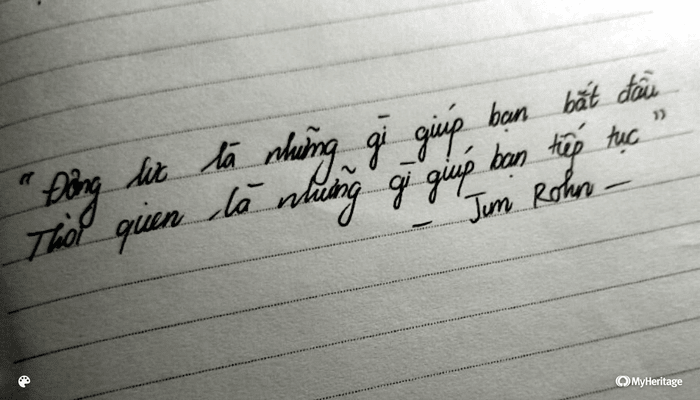 “Động lực là những gì giúp bạn bắt đầu
Thói quen là những gì giúp bạn tiếp tục”
– Jim Rohn –
MyHeritage